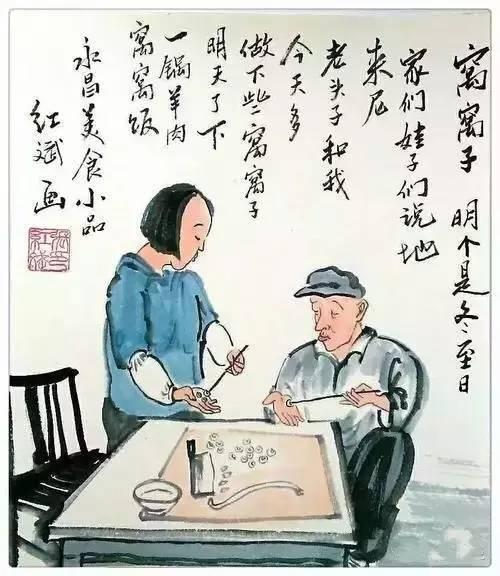 窝窝子 明个是冬至日
家们娃子们说地
来尼
老头子和我
今天多
做下些窝窝子
明天了下
一锅羊肉
窝窝饭
永昌美食小品
红斌画